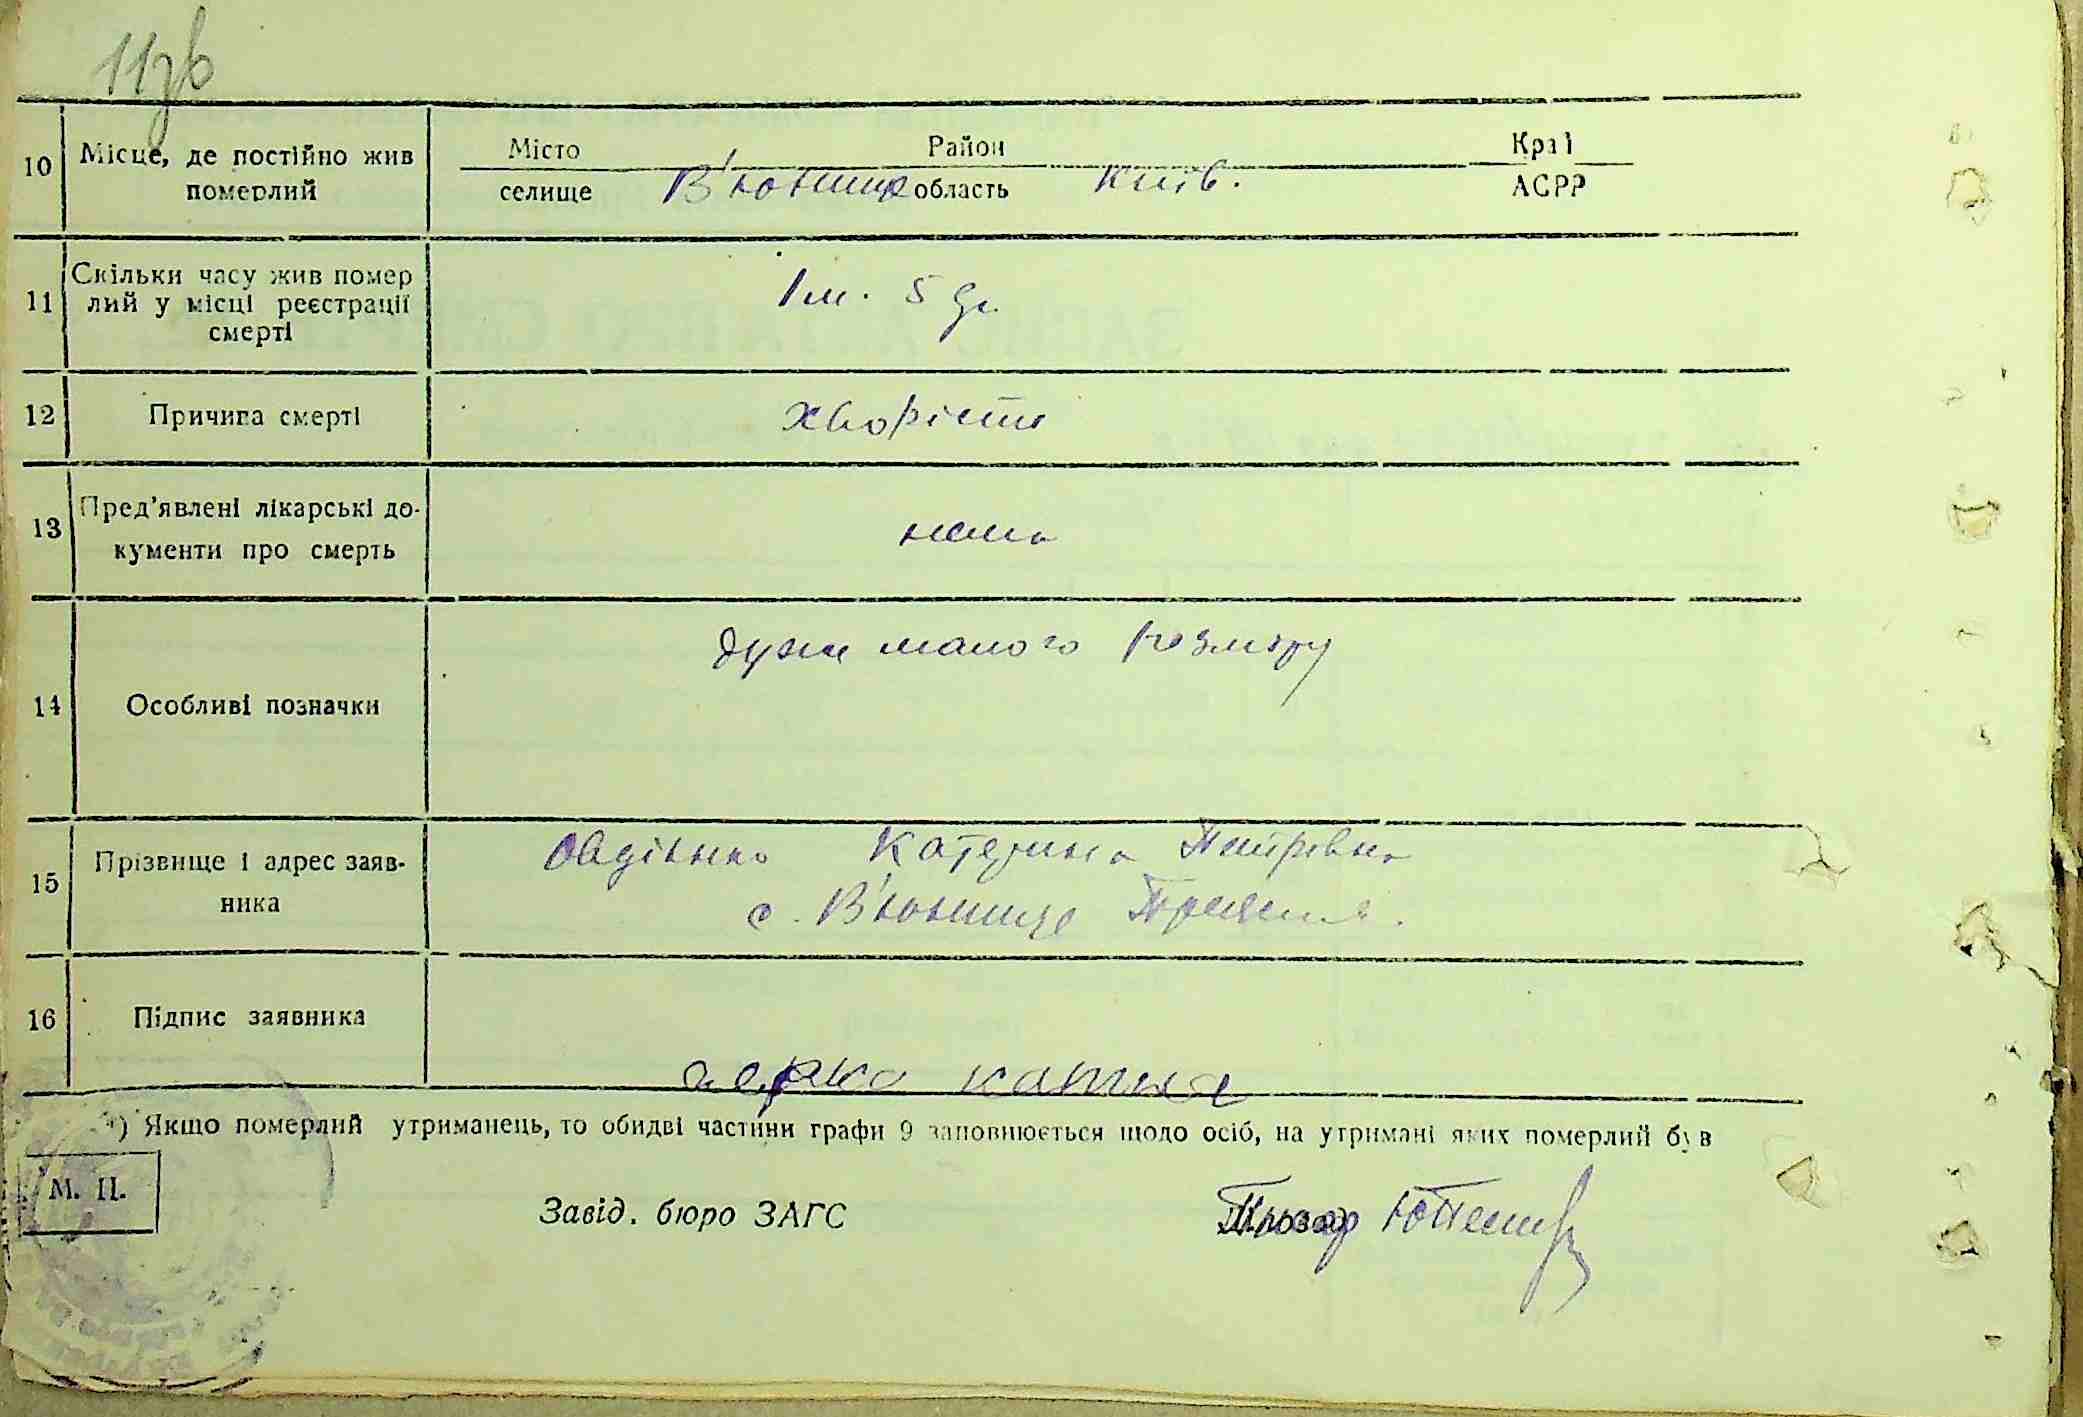 11зв
10 Місце, де постійно жив померлий
Місто Район Краї
селище В'юнище область Київ. АСРР
11 Скільки часу жив помер
лий у місці реєстрації
смерті
1 м. 5 дн.
12 Причина смерті хворість
13 Пред'явлені лікарські до-
кументи про смерть
нема
14 Особливі позначки
дуже малого розміру
15 Прізвище і адрес заяв-
ника
Овдієнко Катерина Петрівна
с. В'юнище
16 Підпис заявника
*) Якщо померлий утриманець, то обидві частини графи 9 заповнюється щодо осіб, на утримані яких померлий був
М. П.
Завід. бюро ЗАГС